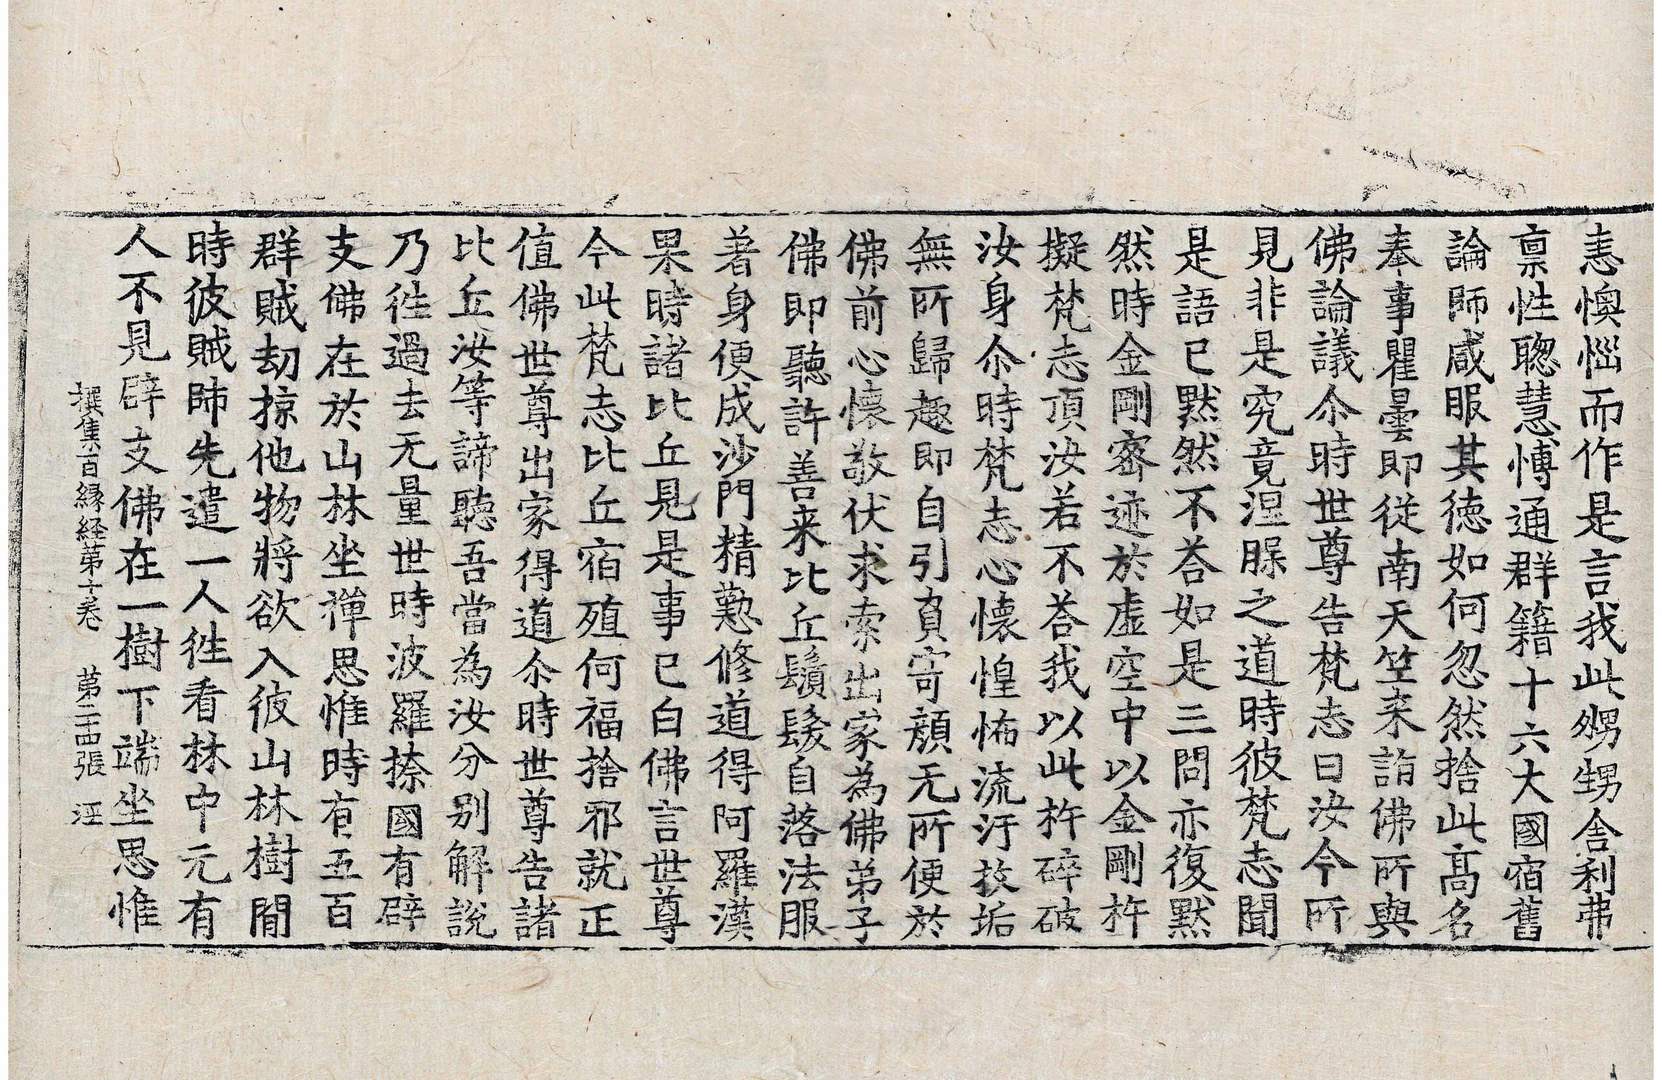 恚懊惱而作是言我此甥甥舍利弗
禀性聦慧愽通群籍十六大國宿舊
論師咸服其徳如何忽然捨此髙名
奉事瞿曇即從南天竺来詣佛所與
佛論議尒時世尊告梵志曰汝今所
見非是究竟涅槃之道時彼梵志聞
是語已黙然不荅如是三問亦復黙
然時金剛密迹於虚空中以金剛杵
擬梵志頂汝若不荅我以此杵碎破
汝身尒時梵志心懷惶怖流汙技垢
無所歸趣即自引負寄顔无所便於
佛前心懷敬伏求索出家為佛弟子
佛即聽許善来比丘鬚髮自落法服
著身便成沙門精懃修道得阿羅漢
果時諸比丘見是事已白佛言世尊
今此梵志比丘宿殖何福捨邪就正
值佛世尊出家得道尒時世尊告諸
比丘汝等諦聽吾當為汝分别解説
乃徃過去无量世時波羅捺國有辟
支佛在於山林坐禪思惟時有五百
群賊劫掠他物將欲入彼山林樹間
時彼賊帥先遣一人徃看林中元有
人不見辟支佛在一樹下端坐思惟
撰集百縁経第十卷　第二十四張　涇